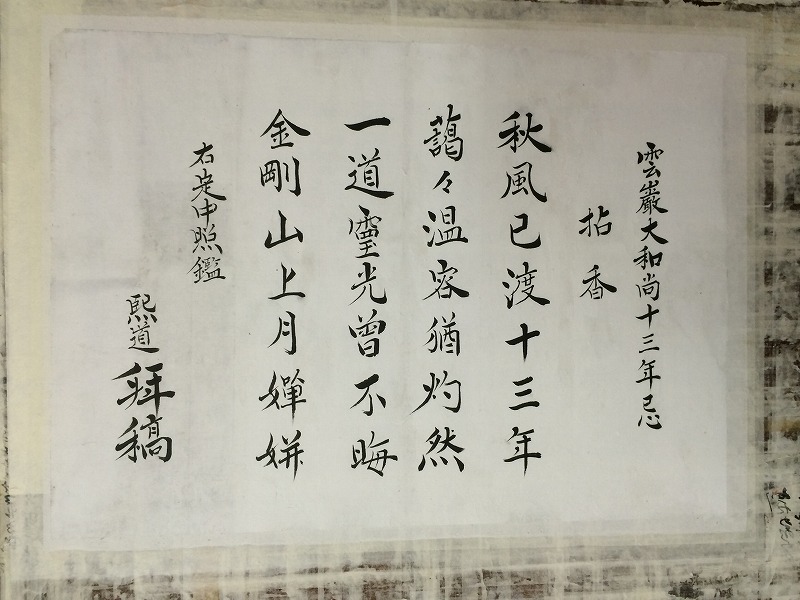 雲巖大和尚十三年忌
拈香
秋風已渡十三年
藹々温容猶灼然
一道霊光曽不晦
金剛山上月嬋妍
右定中照鑑
熙道拜稿